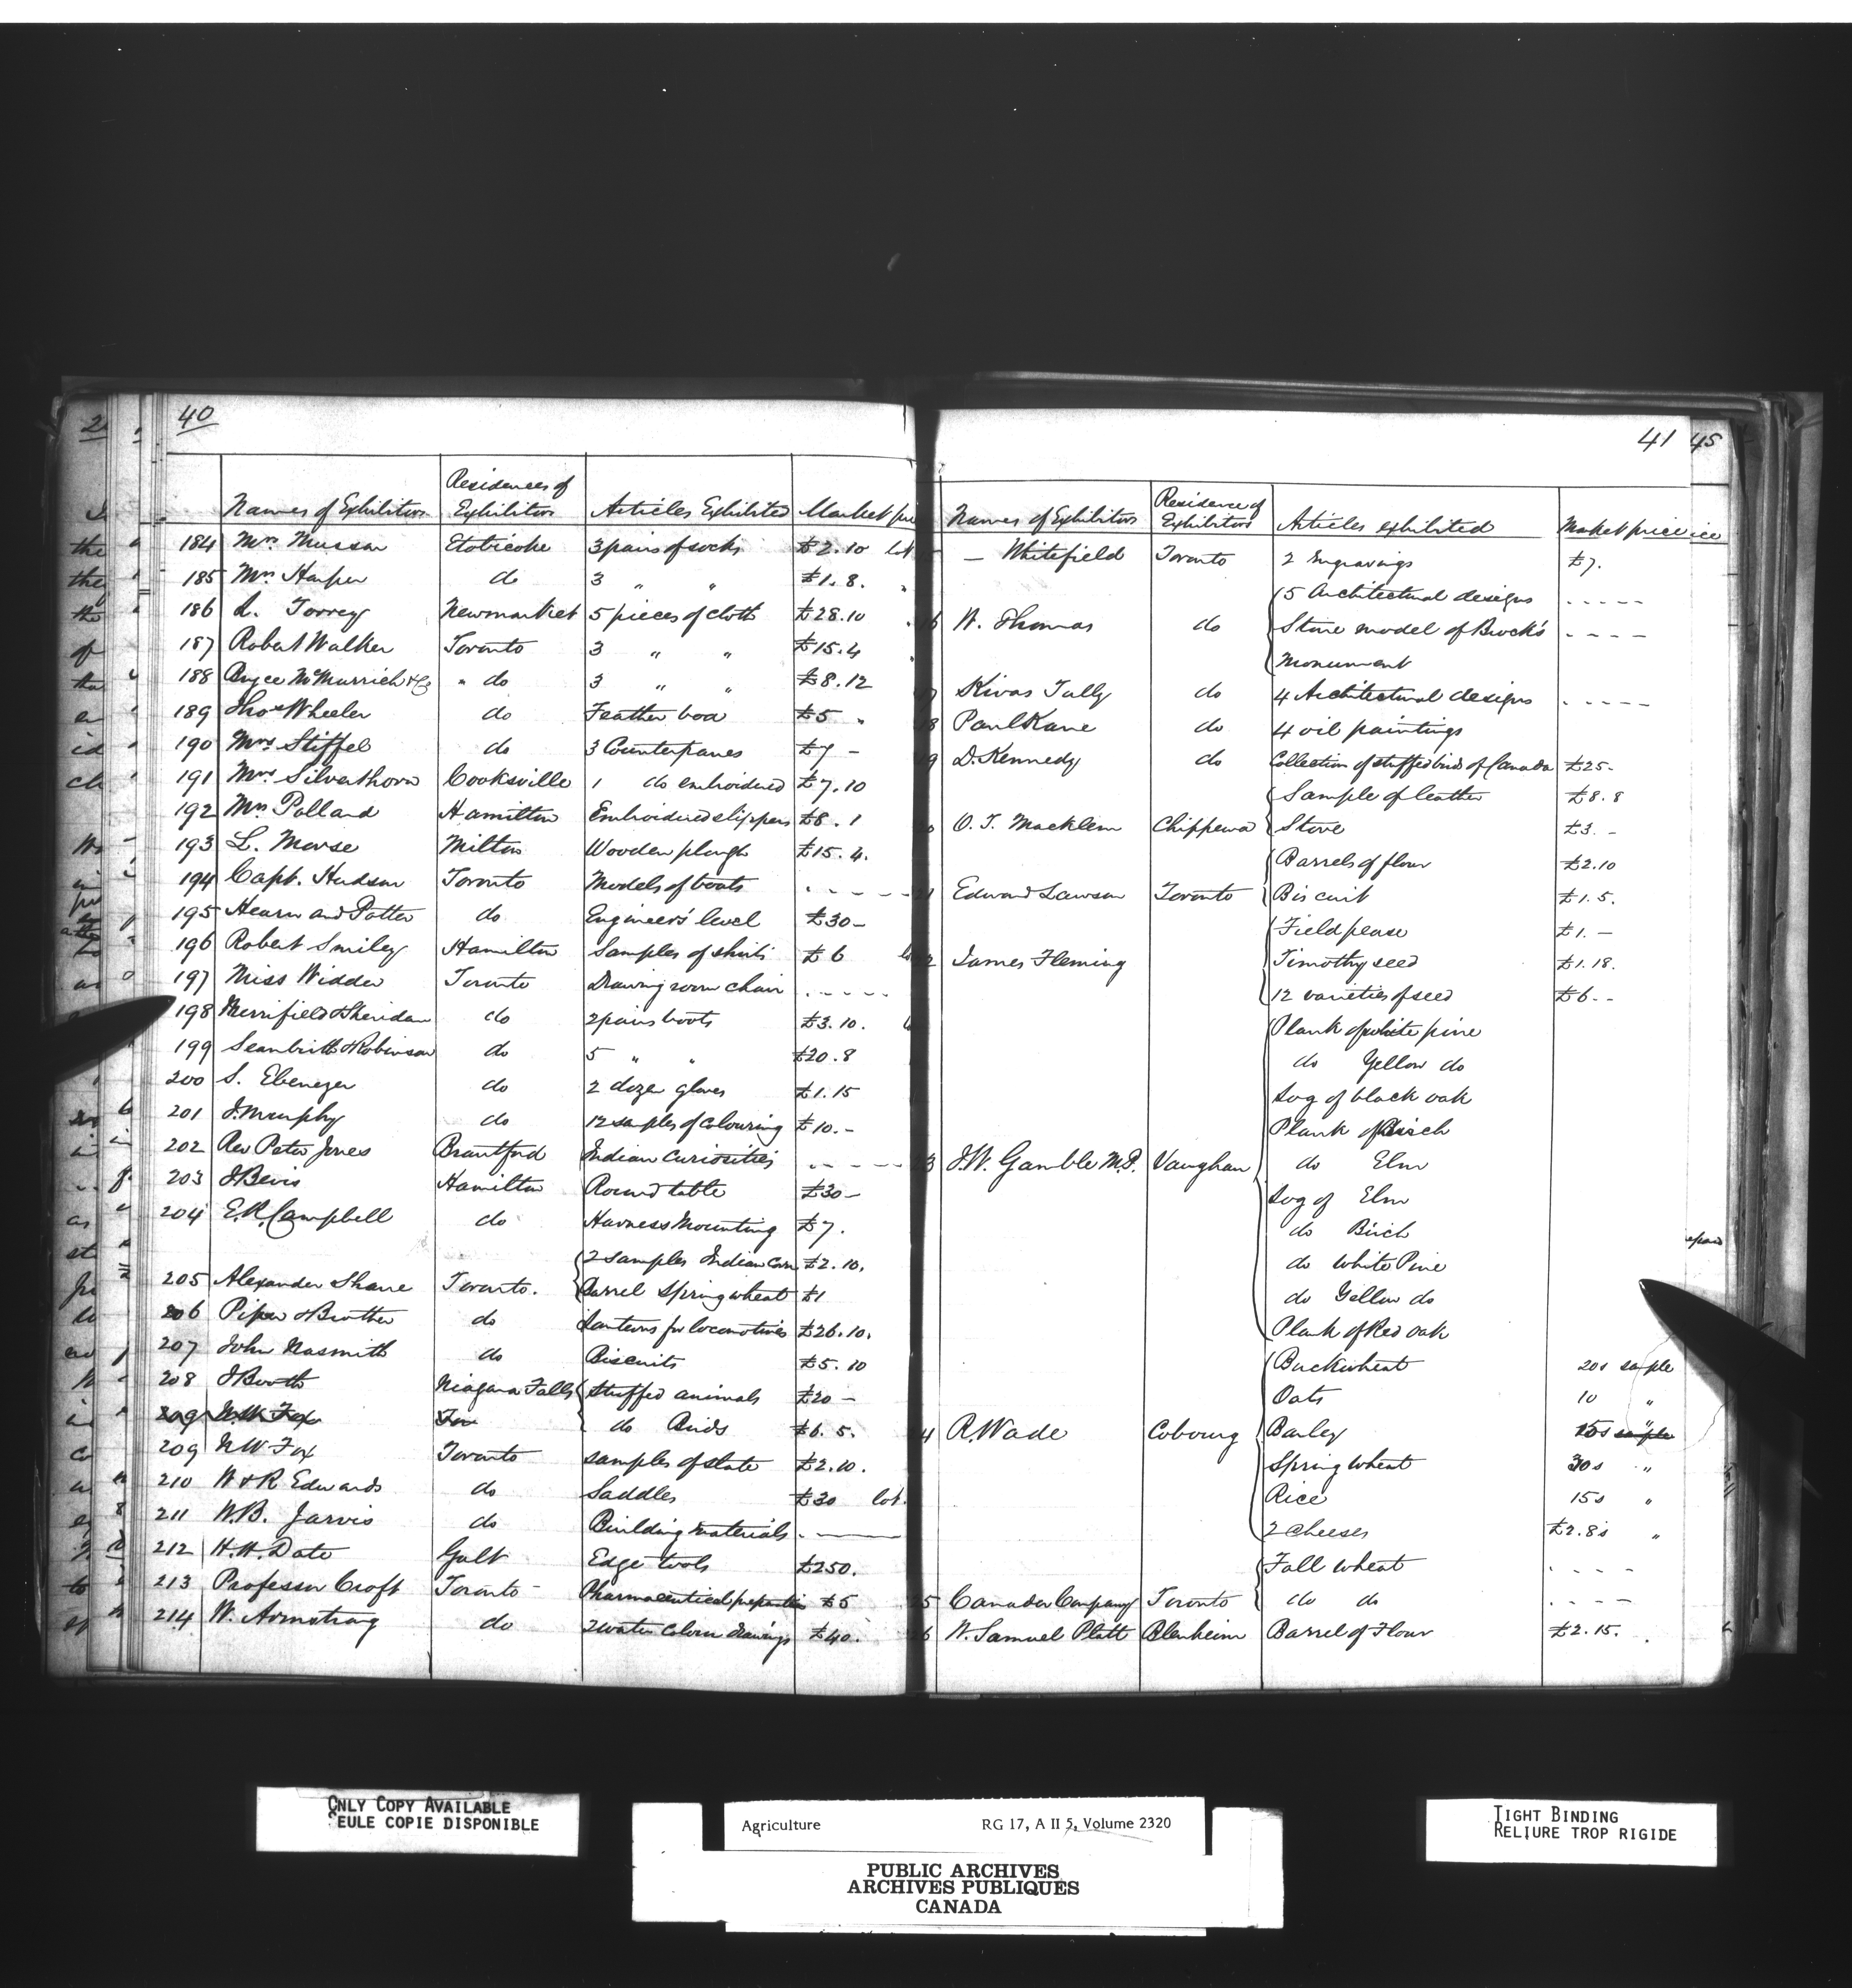 40
Names of Exhibitors Residences of Exhibitors Articles Exhibited Market
184 Mrs Musson Etobicoke 3 pairs of socks £2.10 lot
185 Mrs Harper do 3 " " £1.8. "
186 L. Torrey Newmarket 5 pieces of cloth £28.10
187 Robert Walker Toronto 3 " " £15.4
188 Bryce McMurrich & Co " do 3 " " £8.12
189 Thos Wheeler do Feather boa £5 "
190 Mrs Stiffel do 3 Counterpanes £7 -
191 Mrs Silverthorn Cooksville 1 do embroidered £7.10
192 Mrs Pollard Hamilton Embroidered slippers £8.1
193 L. Morse Milton Wooden plough £15.4.
194 Capt. Hudson Toronto Models of boats - - - -
195 Hearn and Potter do Engineer's level £30 -
196 Robert Smiley Hamilton Samples of shirts £6
197 Miss Widder Toronto Drawing room chair - - - -
198 Merrifield & Sheridan do 2 pairs boots £3.10.
199 & Robinson do 5 " " £20.8
200 S. Ebenezer do 2 dozen gloves £1.15
201 J. Murphy do 12 samples of colouring £10.-
202 Rev Peter Jones Brantford Indian Curiosities - - - -
203 J Bevis Hamilton Round table £30 -
204 E.R. Campbell do Harness Mounting £7.
2 samples Indian Corn £2.10.
205 Alexander Shane Toronto. Barrel Spring wheat £1
206 Piper & Brother do Lanterns for locomotives £26.10.
207 John Nasmith do Biscuits £5.10
208 J Booth Niagara Falls Stuffed animals £20 -
209 Fox do Birds £6.5.
209 N W Fox Toronto samples of slate £2.10.
210 W & R Edwards do Saddles £30 lot.
211 W.B. Jarvis do Building materials
212 H.H. Date Galt Edge tools £250.
213 Professor Croft Toronto Pharmaceutical preparation £5
214 W. Armstrong do 2 water colour drawings £40.
41 45
Names of Exhibitors Residence of Exhibitors Articles exhibited Market price
— Whitefield Toronto 2 Engravings £7.
5 Architectural designs - - - -
W. Thomas do Stone model of Brock's - - - -
Monument
Kivas Tully do 4 Architectural designs - - - -
Paul Kane do 4 oil paintings
D. Kennedy do Collection of stuffed birds of Canada £25 -
Sample of leather £8.8
O.T. Macklem Chippewa Stove £3. -
Barrels of flour £2.10
Edward Lawson Toronto Biscuit £1.5.
Field pease £1. -
James Fleming Timothy seed £1.18.
12 varieties of seed £6 - -
Plank of white pine
do Yellow do
Log of black oak
Plank of Birch
J.W. Gamble M.P. Vaughan do Elm
Log of Elm
do Birch
do White Pine
do Yellow do
Plank of Red oak
Buckwheat 20s sample
Oats 10 "
R. Wade Cobourg Barley 15s sample
Spring wheat 30s "
Rice 15s "
2 Cheeses £2.8s "
Fall wheat - - - -
Canada Company Toronto do do - - - -
W. Samuel Platt Blenheim Barrel of Flour £2.15.
ONLY COPY AVAILABLE
SEULE COPIE DISPONIBLE
Agriculture RG 17, A II 5, Volume 2320
PUBLIC ARCHIVES
ARCHIVES PUBLIQUES
CANADA
TIGHT BINDING
RELIURE TROP RIGIDE